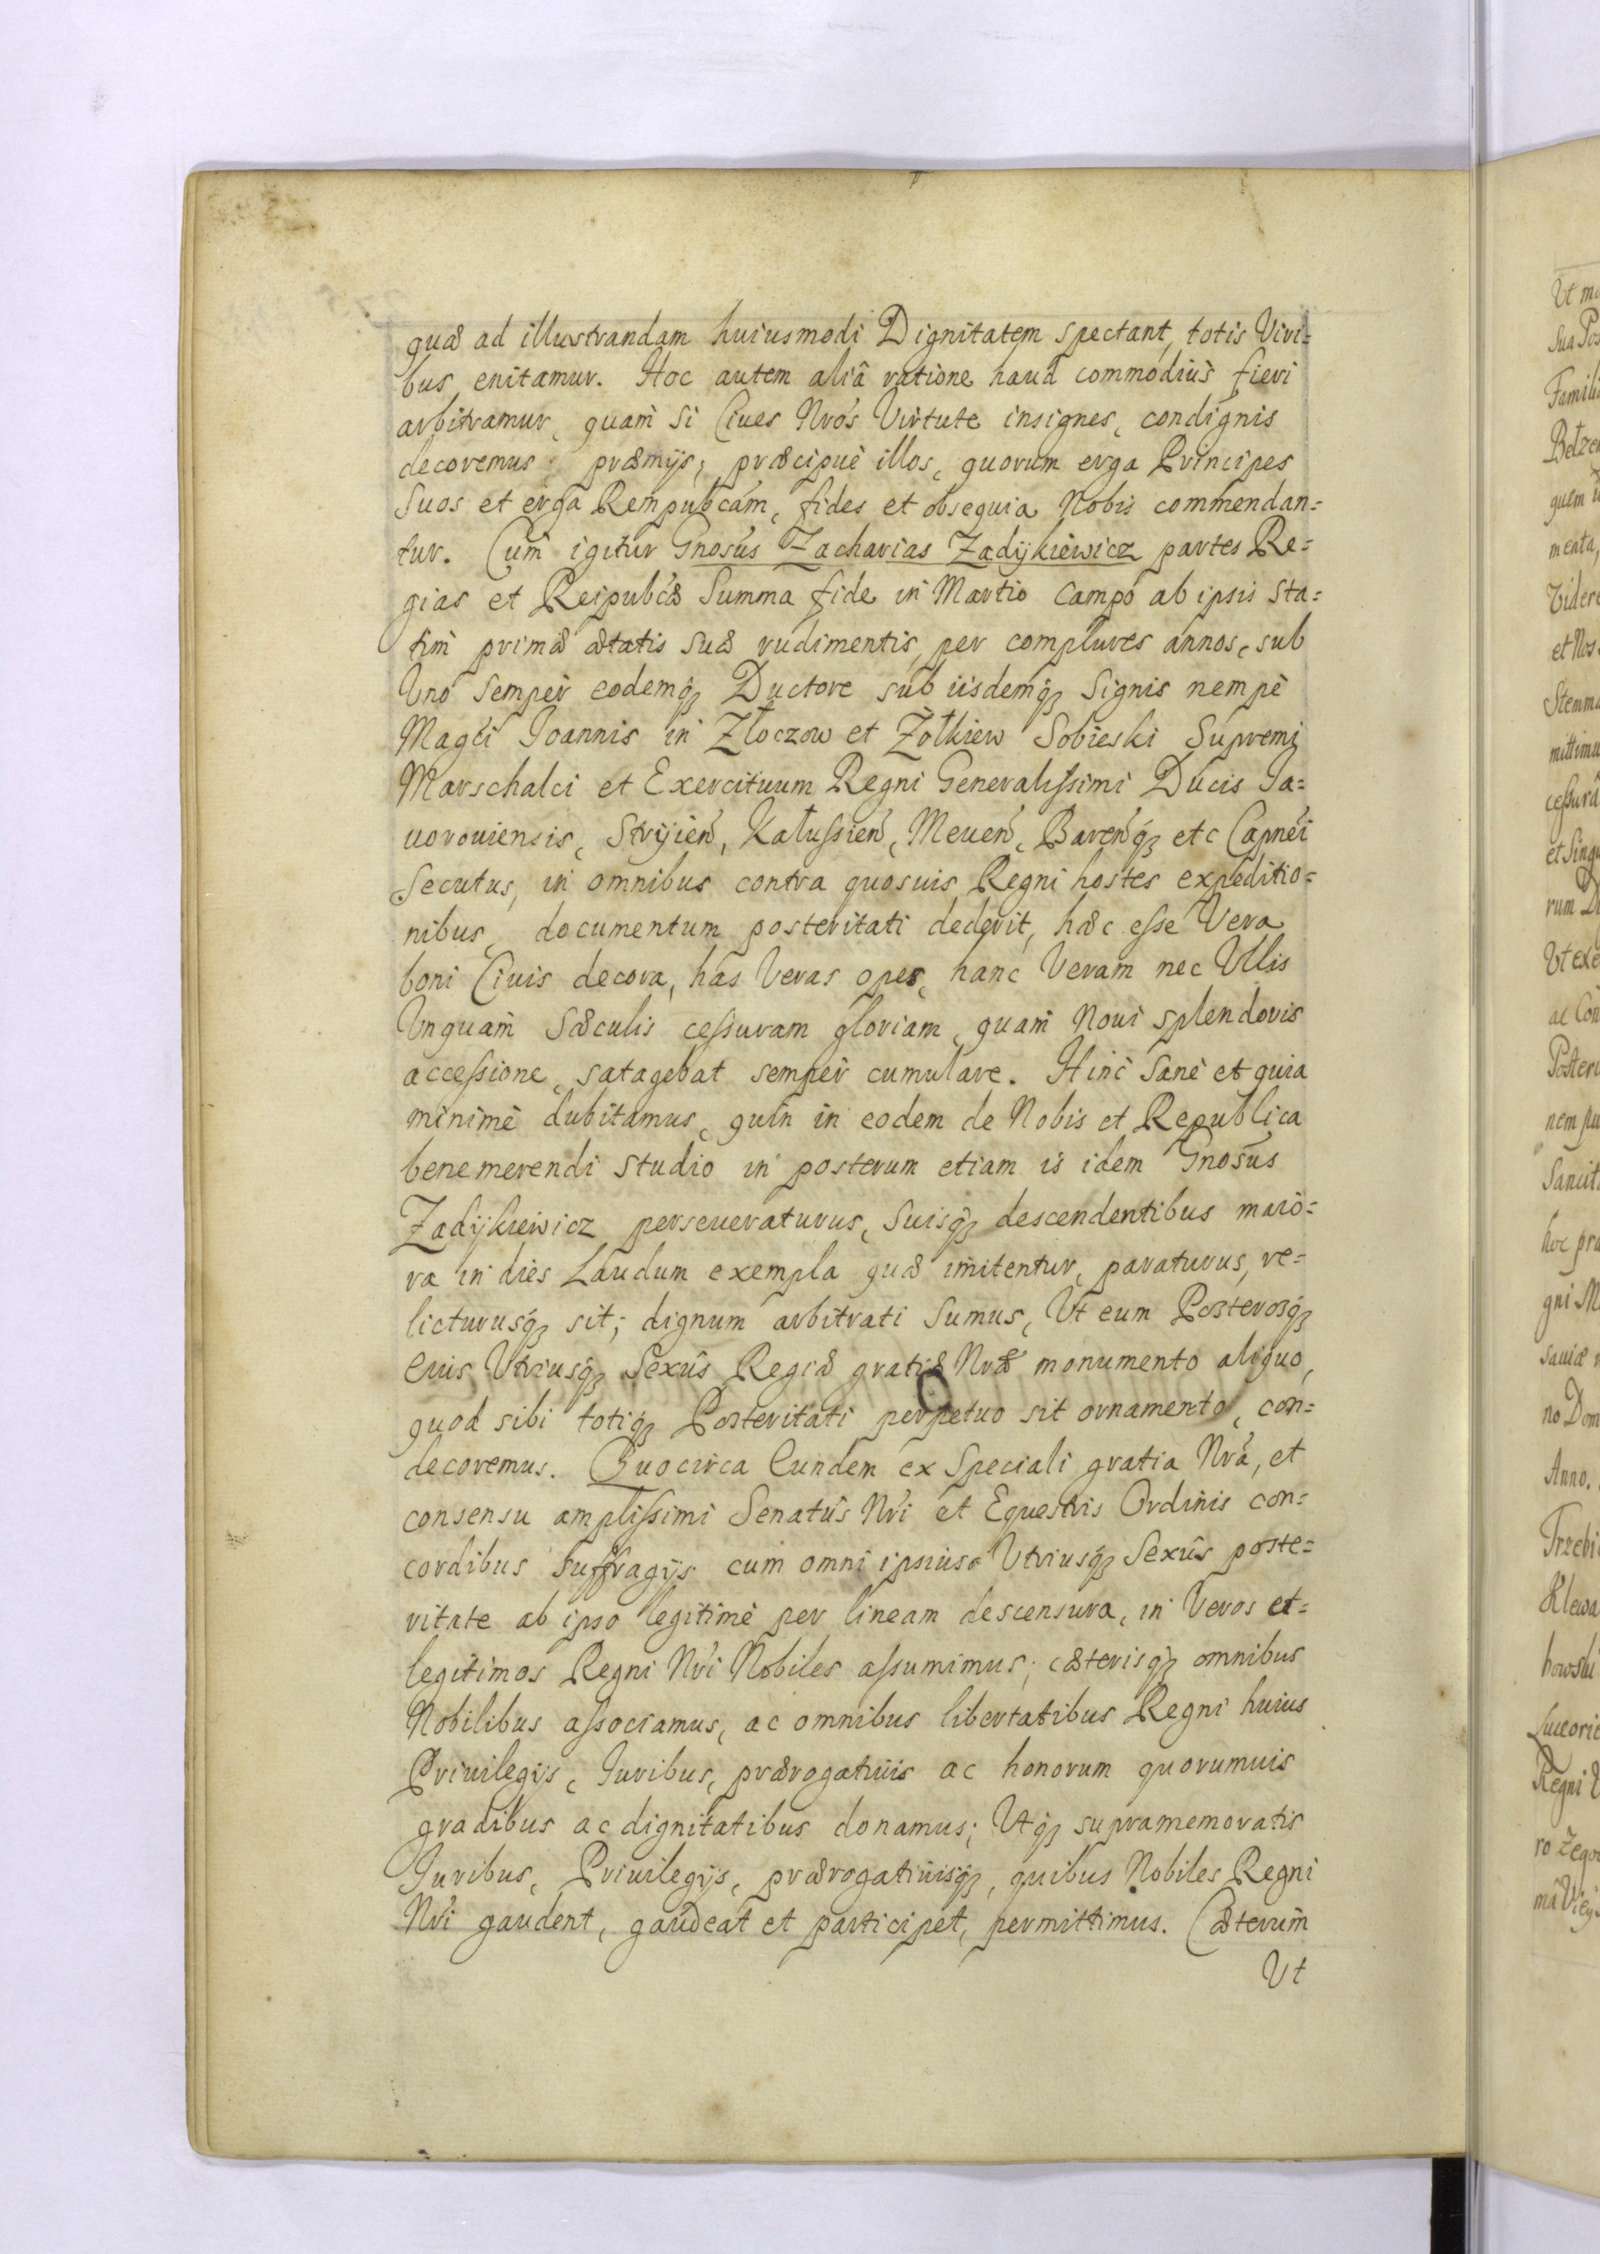 quæ ad illustrandam huiusmodi Dignitatem spectant, totis Viri=
bus enitamur. Hoc autem aliâ ratione haud commodiùs fieri
arbitramur, quam si Ciues Nros Virtute insignes, condignis
decoremus præmijs, præcipuè illos, quorum erga Principes
suos et erga Rempubcam, fides et obsequia Nobis commendan=
tur. Cum igitur Gnosus Zacharias Zadijkiewicz partes Re=
gias et Reipubcæ summa fide in Martio campo ab ipsis sta=
tim primæ ætatis suæ rudimentis, per complures annos, sub
Vno semper eodemq3 Ductore sub iisdemq3 signis nempè
Magci Joannis in Złoczow et Żołkiew Sobieski Supremi
Marschalci et Exercituum Regni Generalissimi Ducis Ja=
uorouiensis, Stryien, Kałussien, Meuen, Barenq3 etc Capnei
Secutus, in omnibus contra quosuis Regni hostes expeditio=
nibus, documentum posteritati dederit, hæc esse Vera
boni Ciuis decora, has Veras opes, hanc Veram nec Vllis
Vnquam Sæculis cessuram gloriam, quam Noui splendoris
accessione, satagebat semper cumulare. Hinc sanè et quia
minimè dubitamus, quin in eodem de Nobis et Republica
benemerendi studio in posterum etiam is idem Gnosus
Zadijkiewicz perseueraturus, suisq3 descendentibus maio=
ra in dies Laudum exempla quæ imitentur, paraturus, re=
licturusq3 sit; dignum arbitrati sumus, Vt eum Posterosq3
eius Vtriusq3 Sexûs Regiæ gratiæ Nræ monumento aliquo,
quod sibi totiq3 Posteritati perpetuo sit ornamento, con=
decoremus. Quocirca Eundem ex speciali gratia Nra, et
consensu amplissimi Senatûs Nri et Equestris Ordinis con=
cordibus suffragijs cum omni ipsius Vtriusq3 Sexûs poste=
ritate ab ipso legitimè per lineam descensura, in Veros et=
legitimos Regni Nri Nobiles assumimus; cæterisq3 omnibus
Nobilibus associamus, ac omnibus libertatibus Regni huius
Priuilegijs, Juribus, prærogatiuis ac honorum quorumuis
gradibus ac dignitatibus donamus; Vtq3 supramemoratis
Juribus, Priuilegijs, prærogatiuisq3, quibus Nobiles Regni
Nri gaudent, gaudeat et participet, permittimus. Cæterum
Vt